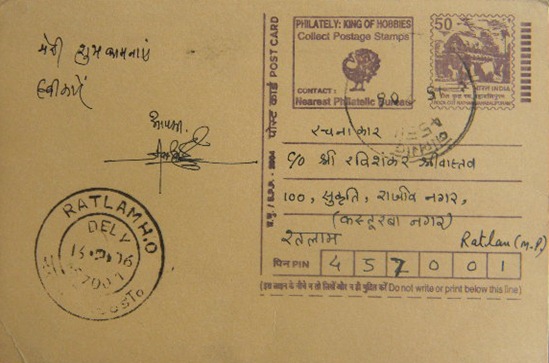 मेरी शुभ कामनाएं
स्वीकारें
आपका
RATLAM H.O
DELY
PHILATELY: KING OF HOBBIES
Collect Postage Stamps
CONTACT:
Nearest Philatelic Bureau
50
भारत INDIA
पोस्ट कार्ड POST CARD
रचनाकार
C/o श्री रविशंकर श्रीवास्तव
100, सुकृति, राजीव नगर,
(कस्तूरबा नगर)
रतलाम Ratlam (M.P)
पिन PIN 457001
(इस लाइन के नीचे न तो लिखें और न ही मुद्रित करें Do not write or print below this line)